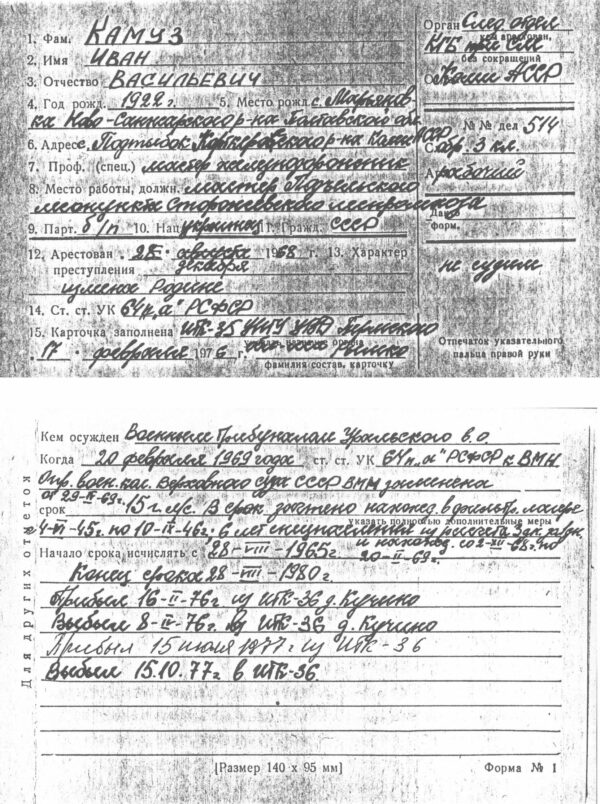 1. Фам. КАМУЗ
2. Имя ИВАН
3. Отчество ВАСИЛЬЕВИЧ
4. Год рожд. 1922 г. 5. Место рожд. с. Марьянов-
ка Ново-Санжарского р-на Полтавской обл
6. Адрес с. Подтыбок Корткеросского р-на Коми АССР
7. Проф. (спец.) мастер
8. Место работы, должн. мастер
лесопункта Сторожевского леспромхоза
9. Парт. б/п 10. Нац. украинец 11. Гражд. СССР
12. Арестован 28 августа 1968 г. 13. Характер
декабря
преступления
измена Родине
14. Ст. ст. УК 64 п. „а" РСФСР
15. Карточка заполнена ИТК-35 УВД Пермского
17 февраля 1976 г.
фамилия состав. карточку
Орган След отдел
кем арестован,
КГБ при СМ
без сокращений
Коми АССР
№ № дел 514
обр. 3 кл.
рабочий
форм.
не судим
Отпечаток указательного
пальца правой руки
Для других отметок
Кем осужден Военным Трибуналом Уральского в.о.
Когда 20 февраля 1969 года ст. ст. УК 64 п. „а" РСФСР к ВМН
Опр. воен. кол. Верховного суда СССР ВМН заменена
от 29-IV-69г.
срок 15 г. л/с. В срок зачтено нахожд. в лагере
указать полностью дополнительные меры
4-VI-45г. по 10-IV-46г.; 6 лет из расчета 3 дн.
и нахожд. со 2-XII-68г. по
20-II-69г.
Начало срока исчислять с 28-VIII-1965г.
Конец срока 28-VIII-1980г.
Прибыл 16-II-76г из ИТК-36 д. Кучино
Выбыл 8-IV-76г. в ИТК-36 д. Кучино
Прибыл 15 июля 1977г из ИТК-36
Выбыл 15.10.77г в ИТК-36
[Размер 140 x 95 мм]
Форма № 1